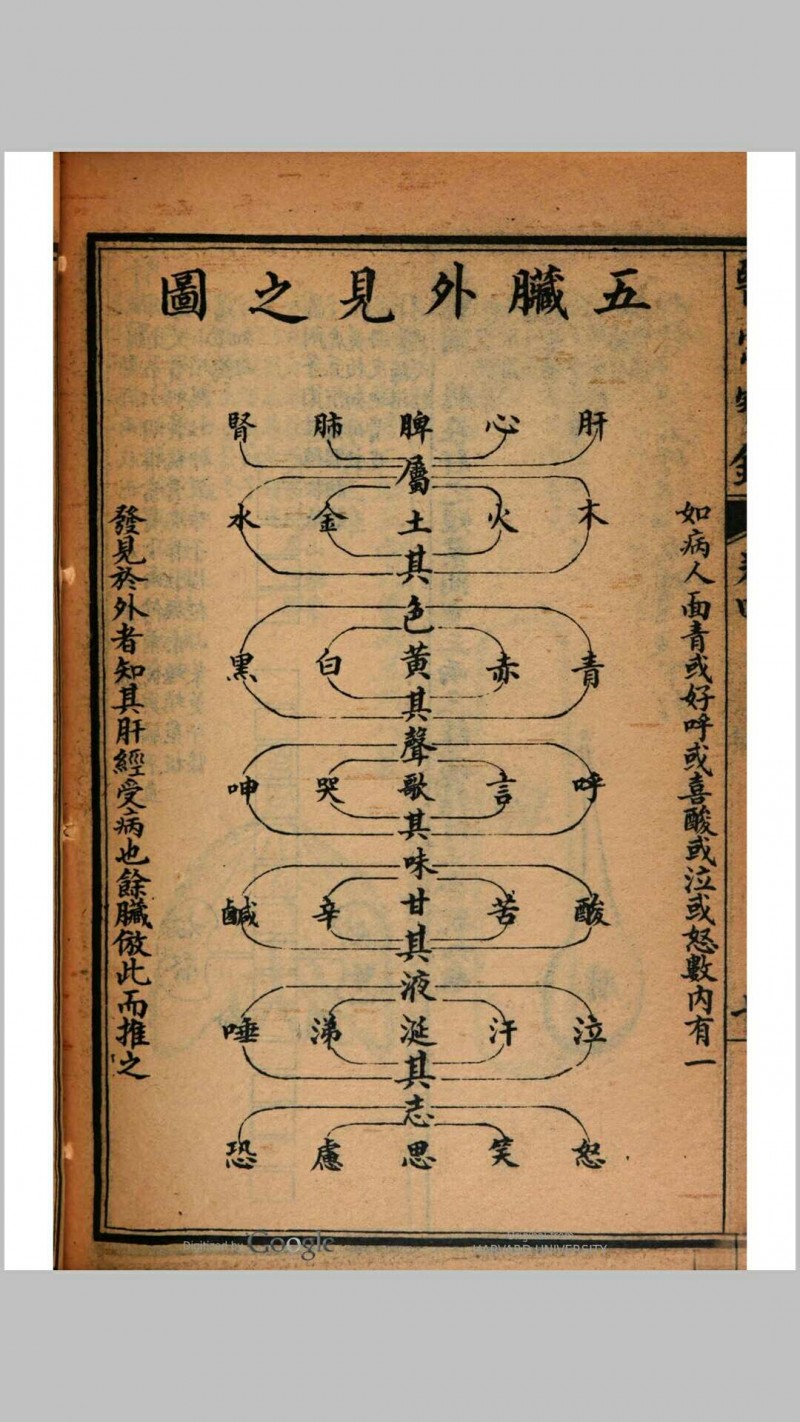 五臟外見之圖
如病人面青或好呼或喜酸或泣或怒數內有一
肝 心 脾 肺 腎
屬
木 火 土 金 水
其
色
青 赤 黃 白 黑
其
聲
呼 言 歌 哭 呻
其
味
酸 苦 甘 辛 鹹
其
液
泣 汗 涎 涕 唾
其
志
怒 笑 思 慮 恐
發見於外者知其肝經受病也餘臟倣此而推之
Digitized by Google
Original from
HARVARD UNIVERSITY